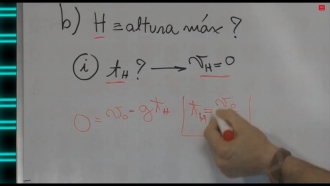 b) H ≡ altura máx ?
i t_H? → v_H = 0
0 = v₀ - g t_H t_H = v₀